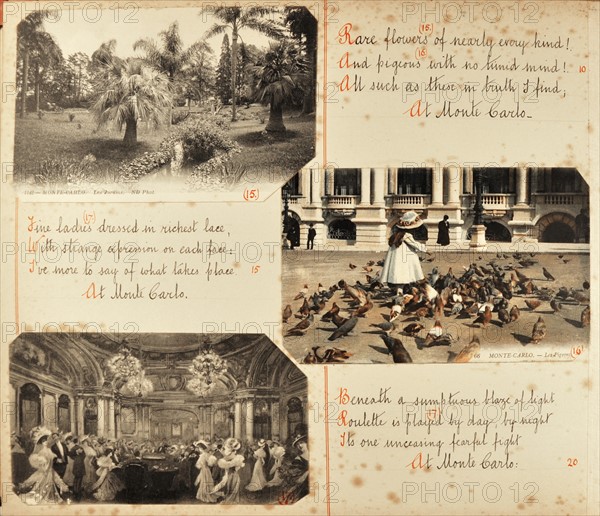 Rare flowers (15.) of nearly every kind!
And pigeons (16.) with no timid mind! 10
All such as these in truth I find,
At Monte Carlo.
MONTE-CARLO. - Les Jardins
(15.)
Fine ladies (17) dressed in richest lace,
With strange expression on each face.
I've more to say of what takes place 15
At Monte Carlo.
MONTE-CARLO. - Les Pigeons
(16)
Beneath a sumptuous blaze of light
Roulette is played (17) by day, by night
It's one unceasing fearful fight
At Monte Carlo. 20
PHOTO 12